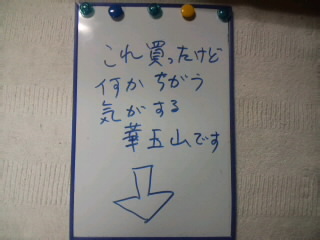 これ買ったけど
何かちがう
気がする
華五山です